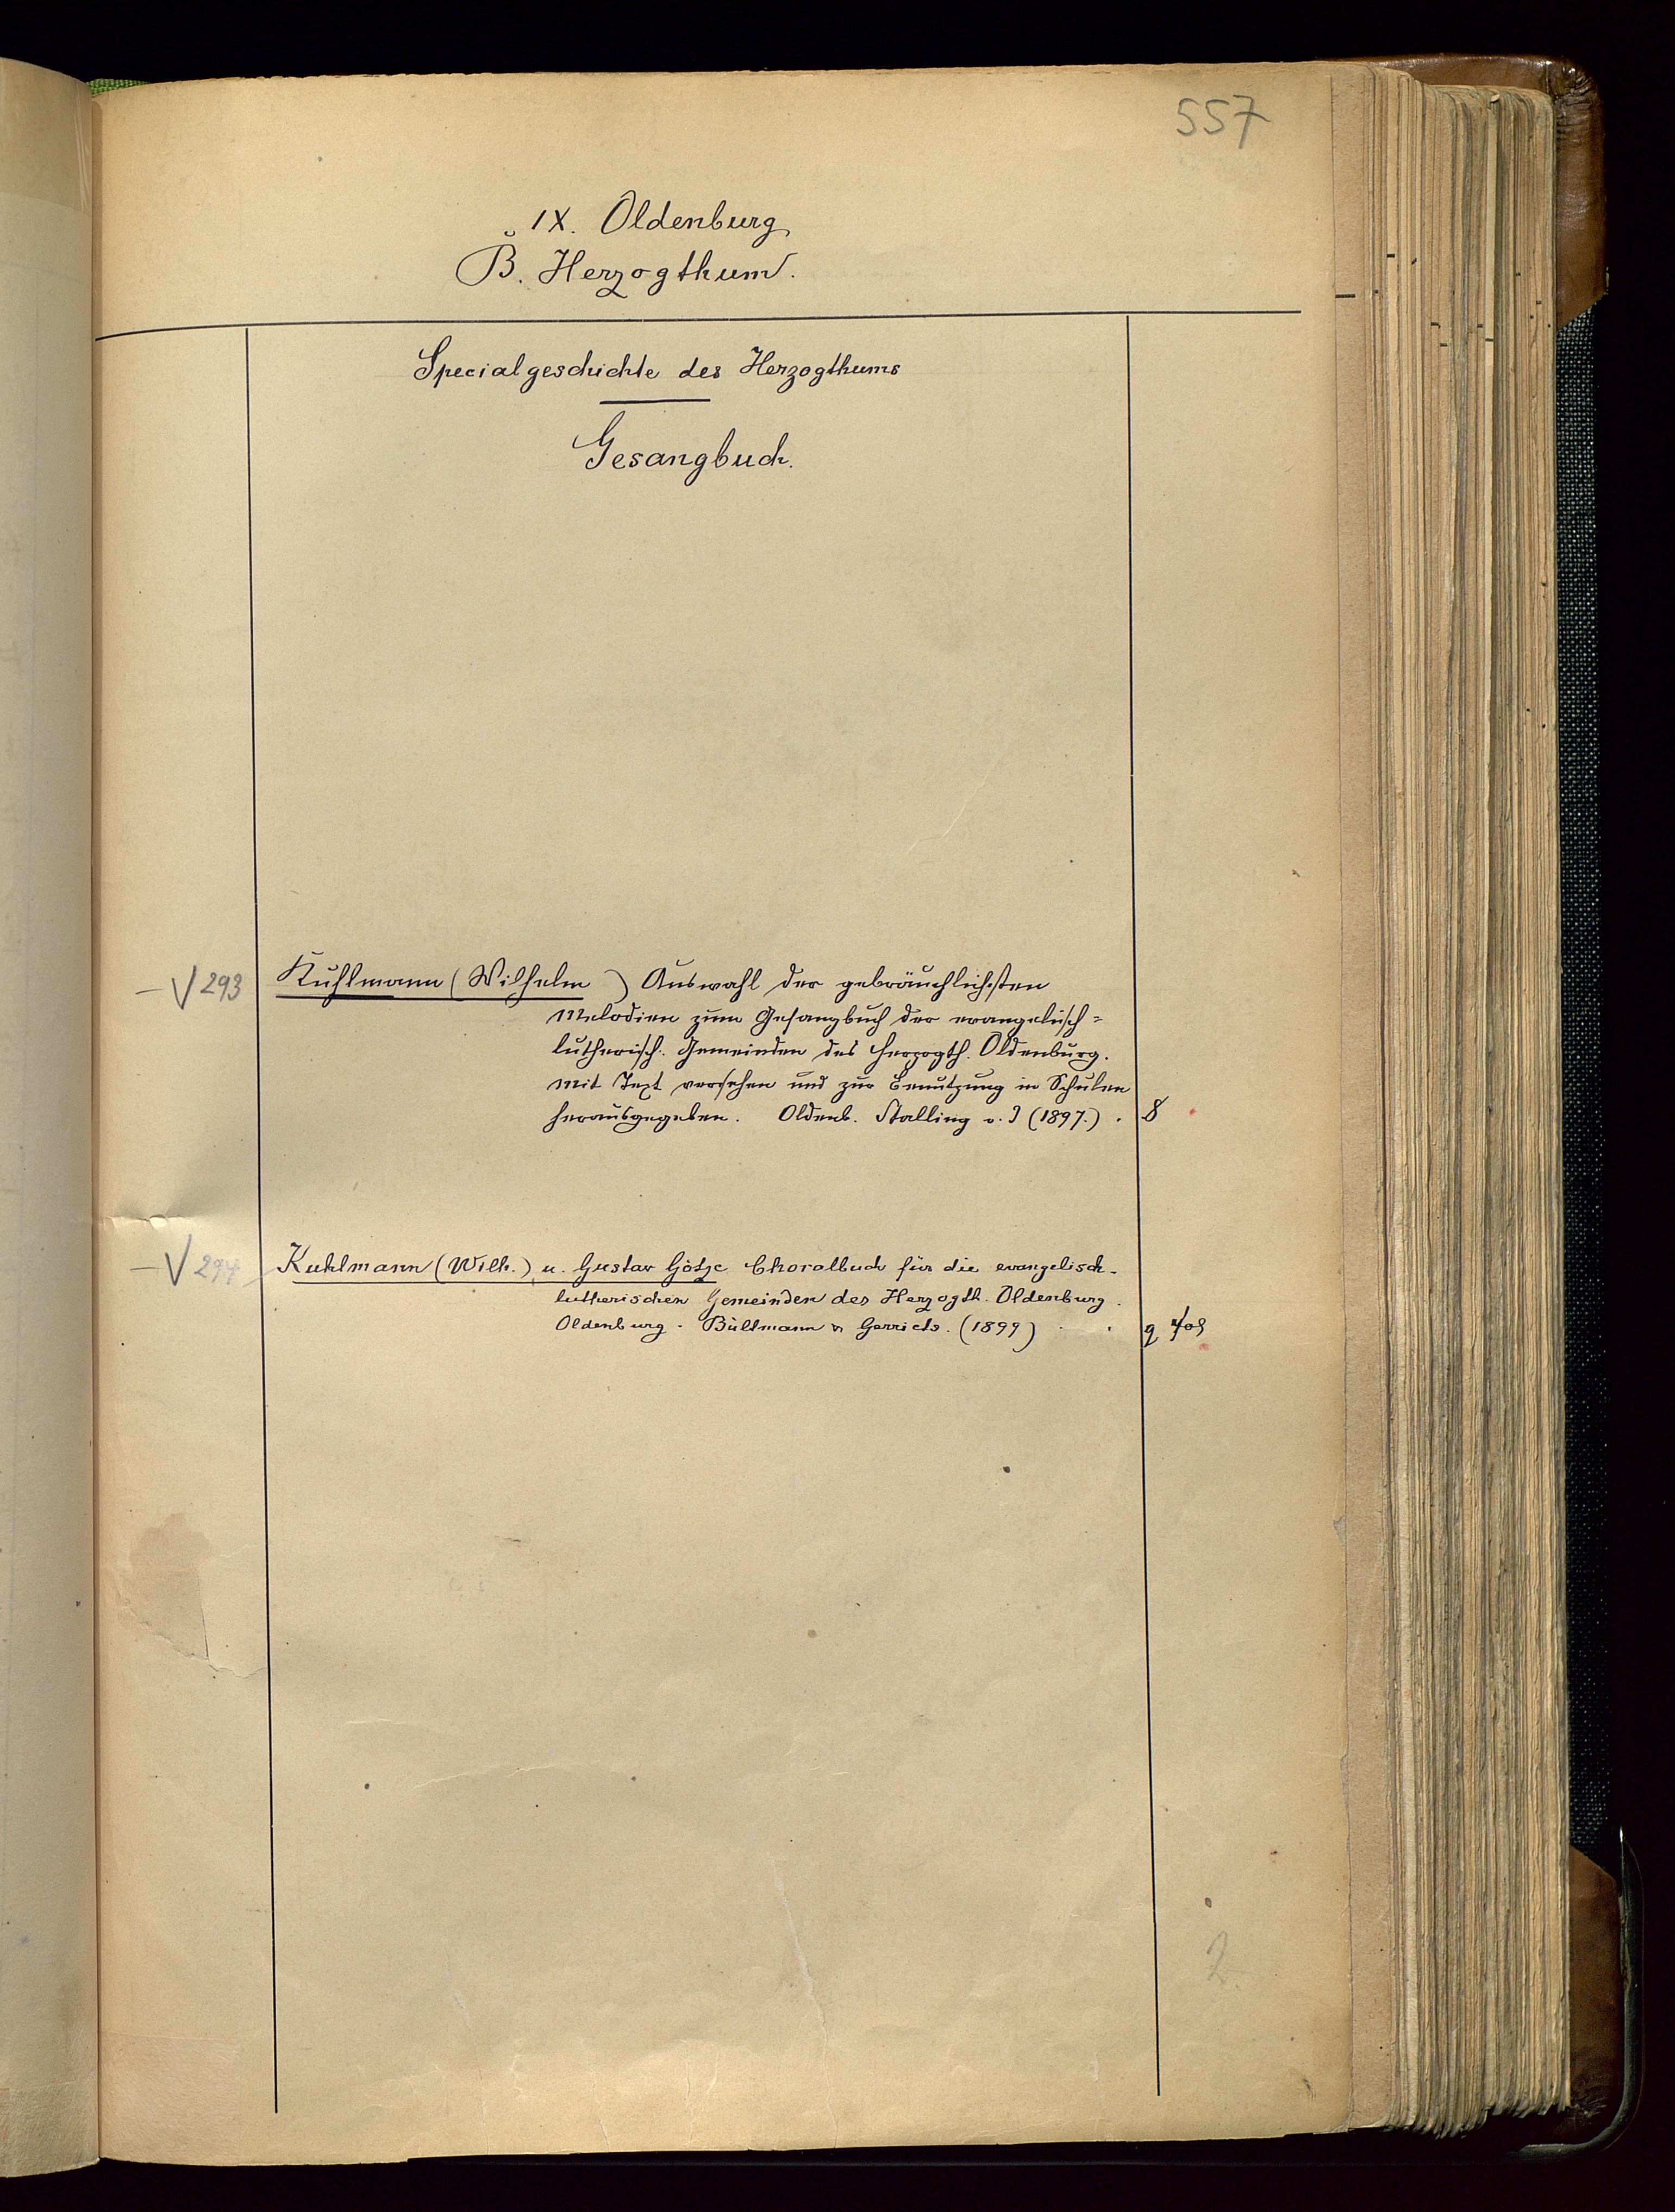 557
IX. Oldenburg
B. Herzogthum.
Specialgeschichte des Herzogthums
Gesangbuch.
V 293 Kuhlmann (Wilhelm) Auswahl der gebräuchlichsten
Melodien zum Gesangbuch der evangelisch=
lutherisch. Gemeinden des Herzogth. Oldenburg.
mit Text versehen und zur Benutzung in Schulen
herausgegeben. Oldenb. Stalling o. J (1897.) . 8
V 294 Kuhlmann (Wilh.) u. Gustav Götze Choralbuch für die evangelisch-
lutherischen Gemeinden des Herzogth. Oldenburg.
Oldenburg. Bültmann & Gerriets. (1899) . . q
2.